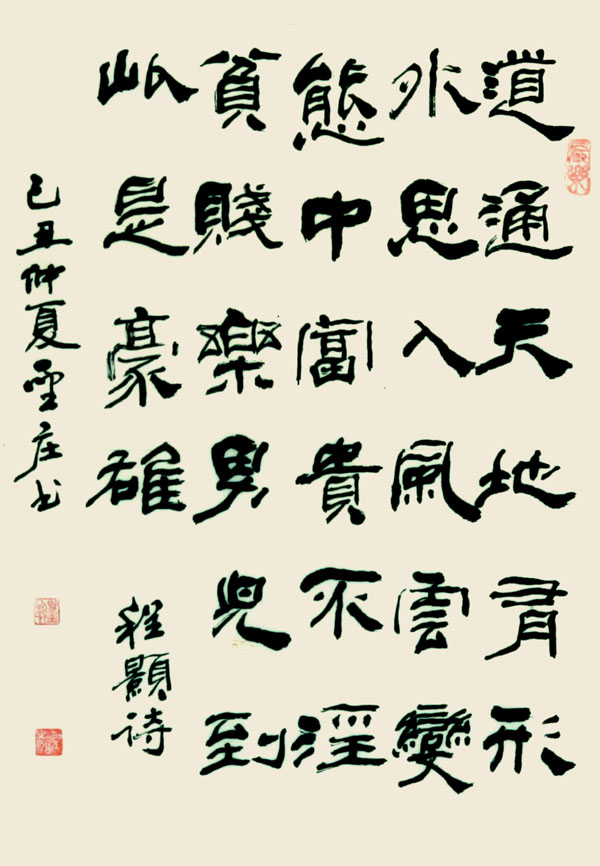 道通天地有形
外思入風雲變
態中富貴不淫
貧賤樂男兒到
此是豪雄
程顥诗
己丑仲夏庄书